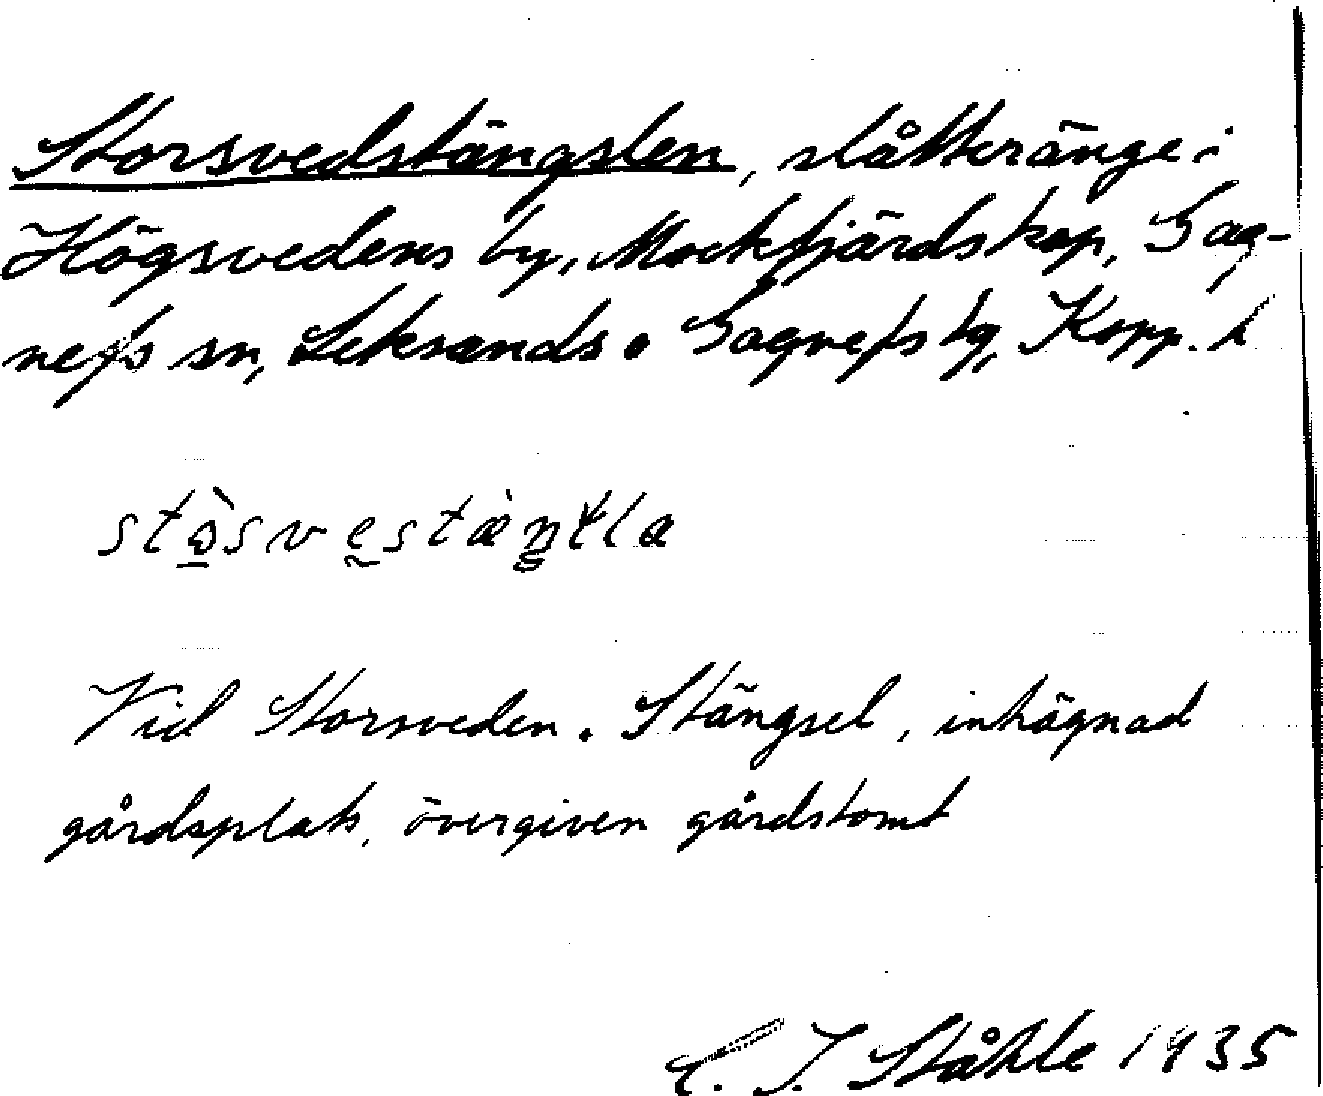 Storsvedstängslen, slåtteränge i
Högsvedens by, Mockfjärds kap, Gag-
nefs sn, Leksands o Gagnefs tg, Kopp. l
Vid Storsveden. Stängsel, inhägnad
gårdsplats, övergiven gårdstomt
C. I. Ståhle 1935